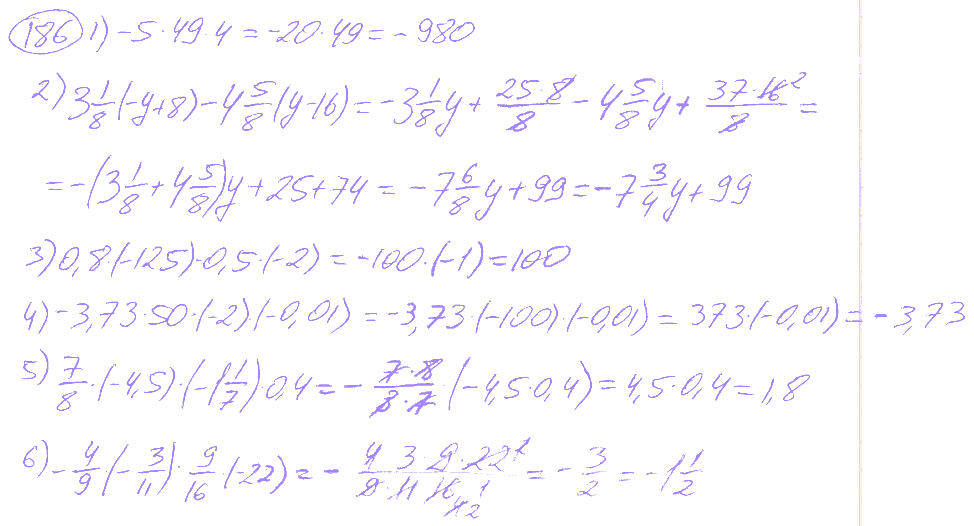 186 1) -5·49·4 = -20·49 = -980
2) 3 1/8 (-y+8) - 4 5/8 (y-16) = -3 1/8 y + 25·8/8 - 4 5/8 y + 37·16²/8 =
= -(3 1/8 + 4 5/8)y + 25 + 74 = -7 6/8 y + 99 = -7 3/4 y + 99
3) 0,8·(-125)·0,5·(-2) = -100·(-1) = 100
4) -3,73·50·(-2)·(-0,01) = -3,73·(-100)·(-0,01) = 373·(-0,01) = -3,73
5) 7/8·(-4,5)·(-1 1/7)·0,4 = - 7·8/8·7·(-4,5·0,4) = 4,5·0,4 = 1,8
6) -4/9·(-3/11)·9/16·(-22) = - 4·3·9·22/9·11·16 = -3/2 = -1 1/2